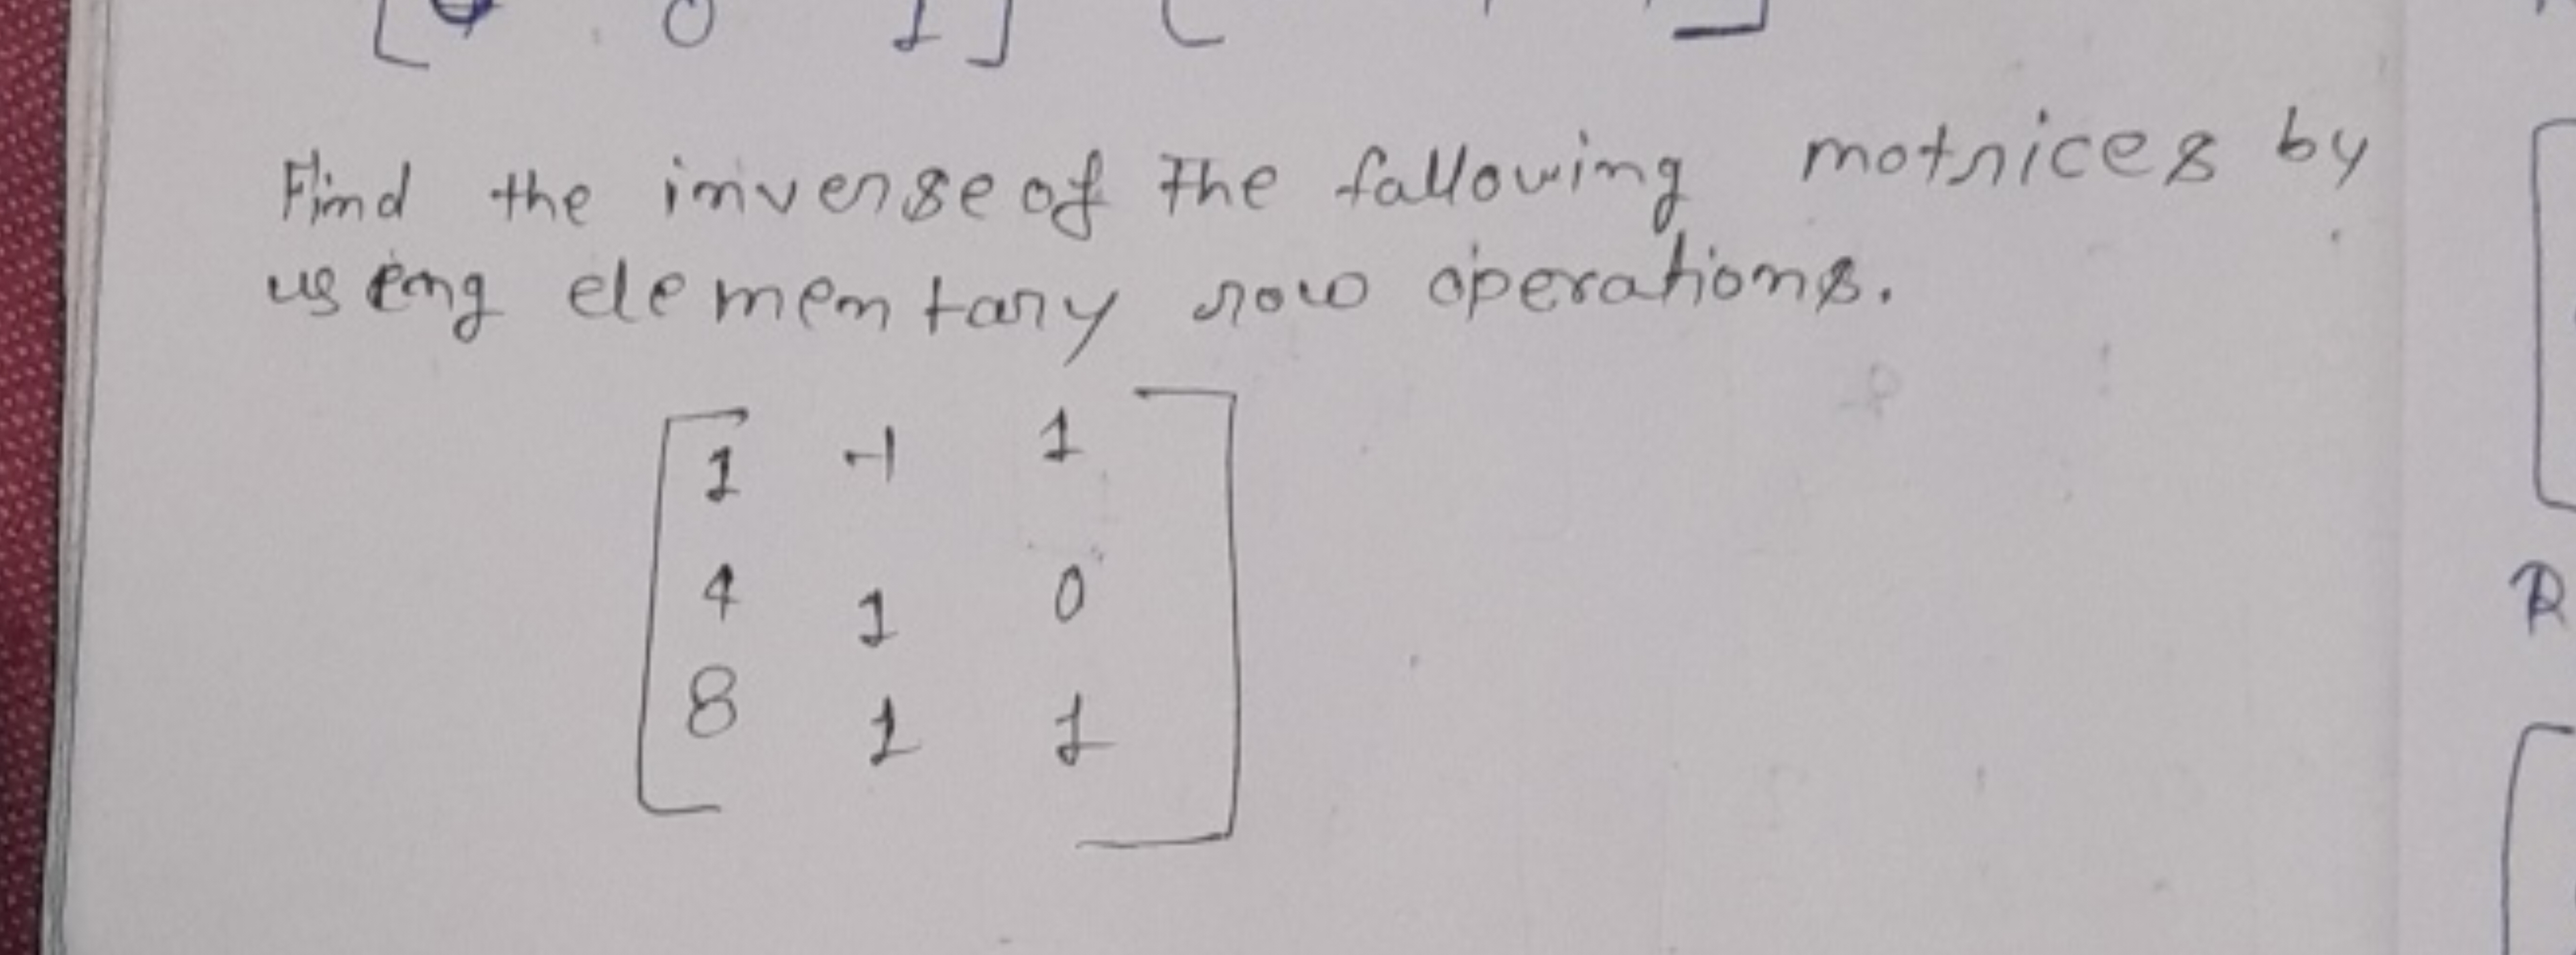 0 1
Find the inverse of the fallowing motrices by
using elementary row operations.
1 -1 1
4 1 0
8 1 1
R